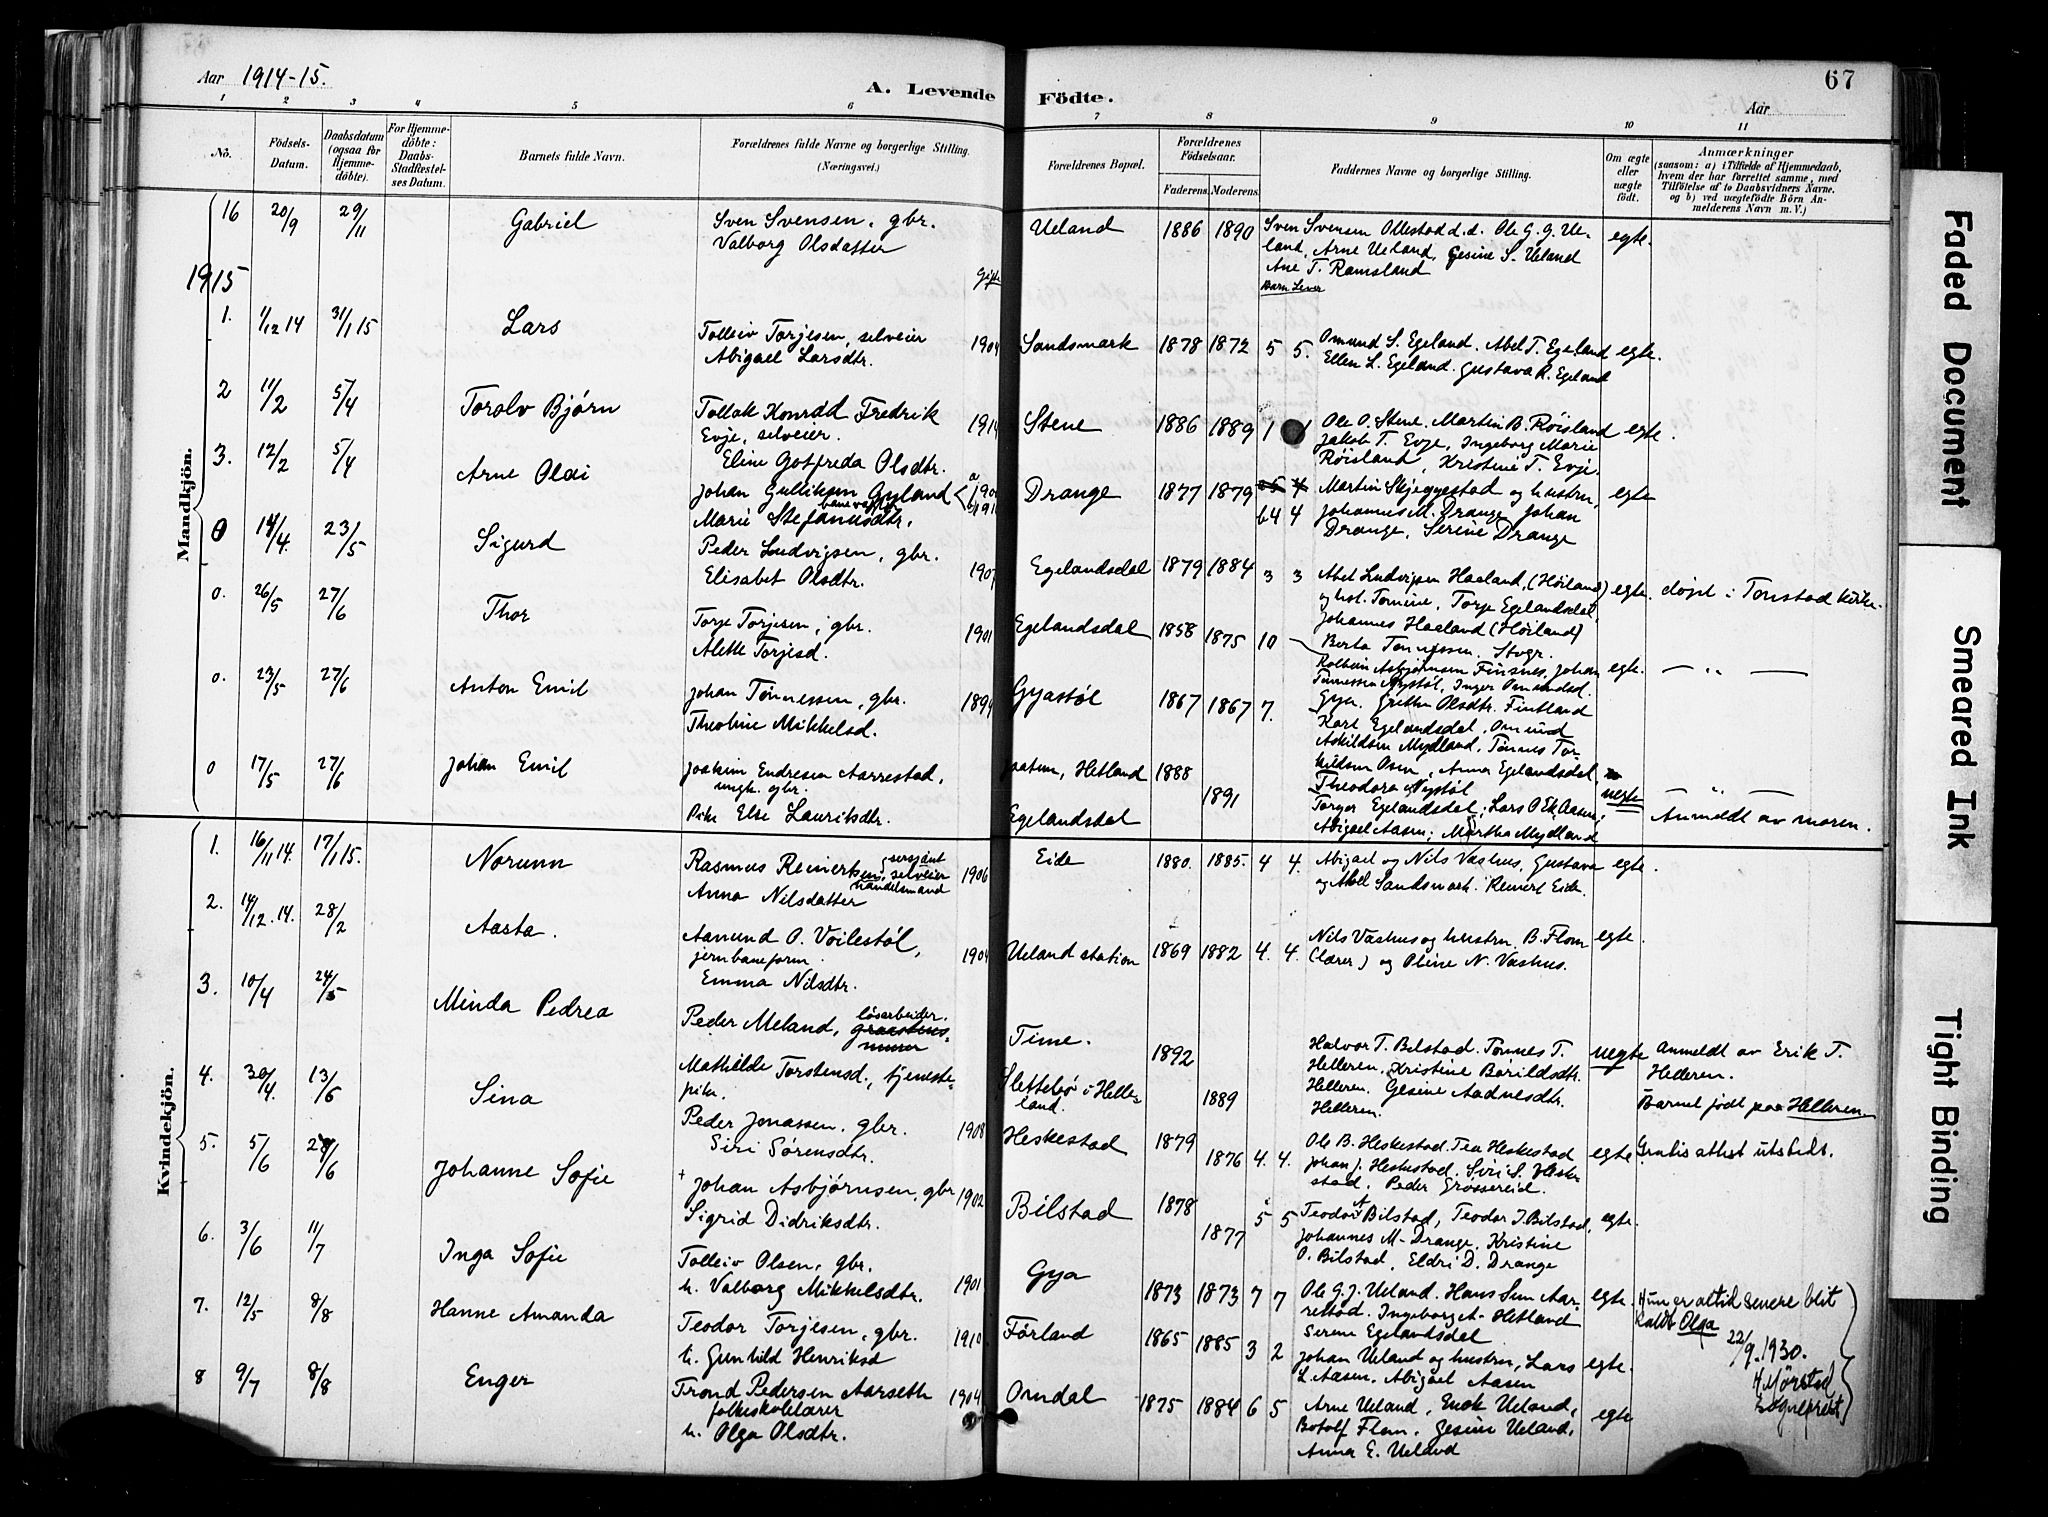 Aar 1914-15.
A. Levende Födte.
67
Aar
1 2 3 4 5 6 7 8 9 10 11
No.
Födsels-Datum.
Daabsdatum (ogsaa for Hjemme-döbte).
For Hjemme-döbte: Daabs-Stadfæstel-ses Datum.
Barnets fulde Navn.
Forældrenes fulde Navne og borgerlige Stilling. (Næringsvei.)
Forældrenes Bopæl.
Forældrenes Födselsaar.
Faderens. Moderens.
Faddernes Navne og borgerlige Stilling.
Om ægte eller uægte födt.
Anmærkninger
(saasom: a) i Tilfælde af Hjemmedaab,
hvem der har forrettet samme, med
Tilföielse af to Daabsvidners Navne,
og b) ved uægtefödte Börn An-
melderens Navn m. V.)
Mandkjön.
16 20/9 29/11 Gabriel
Sven Svensen, gbr.
Valborg Olsdatter
Ueland 1886 1890
Sven Svensen Ollestad d.d. Ole G. G. Ue-
land, Arne Ueland, Gesine S. Ueland
Ane T. Ramsland
egte.
1915
Gifte
Barn Lever
1. 1/12 14 31/1 15 Lars
Tolleiv Torjesen, selveier
Abigael Larsdtr.
1904 Sandsmark 1878 1872 5 5.
Omund S. Egeland. Abel T. Egeland
Ellen L. Egeland. Gustava R. Egeland
egte.
2 11/2 5/4 Torolv Bjørn
Tollak Konrad Fredrik
Evje, selveier.
Eline Gotfreda Olsdtr.
1914 Stene 1886 1889 1 1
Ole O. Stene. Martin B. Røisland
Jakob T. Evje, Ingeborg Marie
Røisland, Kristine T. Evje.
egte.
3. 12/2 5/4 Arne Olai
Johan Gulliksen Gyland
banevogter
Marie Stefanusdtr.
Drange 1877 1879
b4 4
Martin Skjeggestad og hustru,
Johannes M. Drange, Johan
Drange, Serine Drange
egte
0 14/4. 23/5 Sigurd
Peder Ludvigsen, gbr.
Elisabet Olsdtr.
1907 Egelandsdal 1879 1884 3 3
Abel Ludvigsen Haaland, (Høiland)
og hst. Tomine, Torje Egelandsdal,
Johannes Haaland (Høiland)
egte. døpt i Tonstad kirke.
0. 26/5 27/6 Thor
Torje Torjesen, gbr.
Alette Torjesd.
1901 Egelandsdal 1858 1875 10
Berta Tønnessen, Stvgr.
Asbjørnsen Finsnes, Johan
Tønnessen Nystøl, Inger Omundsd.
egte. — " —
0. 23/5 27/6 Anton Emil
Johan Tønnessen, gbr.
Theoline Mikkelsd.
1894 Gyastøl 1867 1867 7.
Gya. Grethe Olsdtr. Fintland
Karl Egelandsdal, Omund
Askildsen Mydland, Tønnes Tor-
kildsen Osen, Anna Egelandsdal,
Theodora Nystøl
0 17/5 27/6 Johan Emil
Joakim Endresen Aarrestad,
ungk. gbr.
Pike Else Lauritsdtr.
Hetland 1888
Egelandsdal 1891
Torger Egelandsdal, Lars O. Aasen,
Abigael Aasen, Martha Mydland
uegte
— " —
Anmeldt av moren.
Kvindekjön.
1. 16/11 14. 17/1 15. Norunn
Rasmus Reinertsen, sersjant
selveier
handelsmand
Anna Nilsdatter
1906 Eide 1880. 1885. 4 4.
Abigael og Nils Vashus, Gustava
og Abel Sandsmark. Reinert Eide
egte.
2. 14/12. 14. 28/2 Aasta.
Aanund O. Voilestøl,
jernbaneform.
Emma Nilsdtr.
1904 Ueland station 1869 1882 4. 4.
Nils Vashus og hustru. B. Flom
(lærer) og Oline N. Vashus.
egte.
3. 10/4 24/5 Minda Pedrea
Peder Meland, løsarbeider.
Mathilde Torstensd., tjeneste-
pike.
Time. 1892
Slettebø i Helle-
land. 1889
Halvor T. Bilstad. Tønnes T.
Helleren, Kristine Borildsdtr.
Helleren. Gesine Aadnesdtr.
Helleren.
uegte Anmeldt av Erik T.
Helleren.
Barnet født paa Helleren
4. 30/4. 13/6 Sina
Peder Jonassen, gbr.
Siri Sørensdtr.
1908 Heskestad 1879 1876 4. 4.
Ole B. Heskestad. Tea Heskestad
Johan J. Heskestad. Siri S. Heske-
stad, Peder Grøssereid.
egte Gratis attest utstedt.
5. 5/6 /6 Johanne Sofie
+ Johan Asbjørnsen, gbr
Sigrid Didriksdtr.
1902 Bilstad 1878 1877 5 5
Teodor A Bilstad, Teodor J. Bilstad,
Johannes M. Drange, Kristine
O. Bilstad, Eldri D. Drange
egte.
6. 3/6 11/7 Inga Sofie
Tolleiv Olsen, gbr.
h. Valborg Mikkelsdtr.
1901 Gya 1873 1873 7 7
Ole G. J. Ueland. Hans Sem Aar-
restad. Ingeborg A. Hetland
Serene Egelandsdal
egte.
7. 12/5 8/8 Hanne Amanda
Teodor Torjesen, gbr.
h. Gunhild Henriksd
1910 Førland 1865 1885 3 2
Johan Ueland og hustru, Lars
L. Aasen, Abigael Aasen
egte.
Hun er altid senere blit
kaldt Olga
22/9.1930.
H. Mørstad
Sogneprest
8 9/7 8/8 Enger
Trond Pedersen Aarseth
folkeskolelærer
h. Olga Olsdtr.
1904 Omdal 1875 1884 6 5
Arne Ueland, Enok Ueland,
Botolf Flom, Gesine Ueland,
Anna E. Ueland
egte
Faded Document
Smeared Ink
Tight Binding